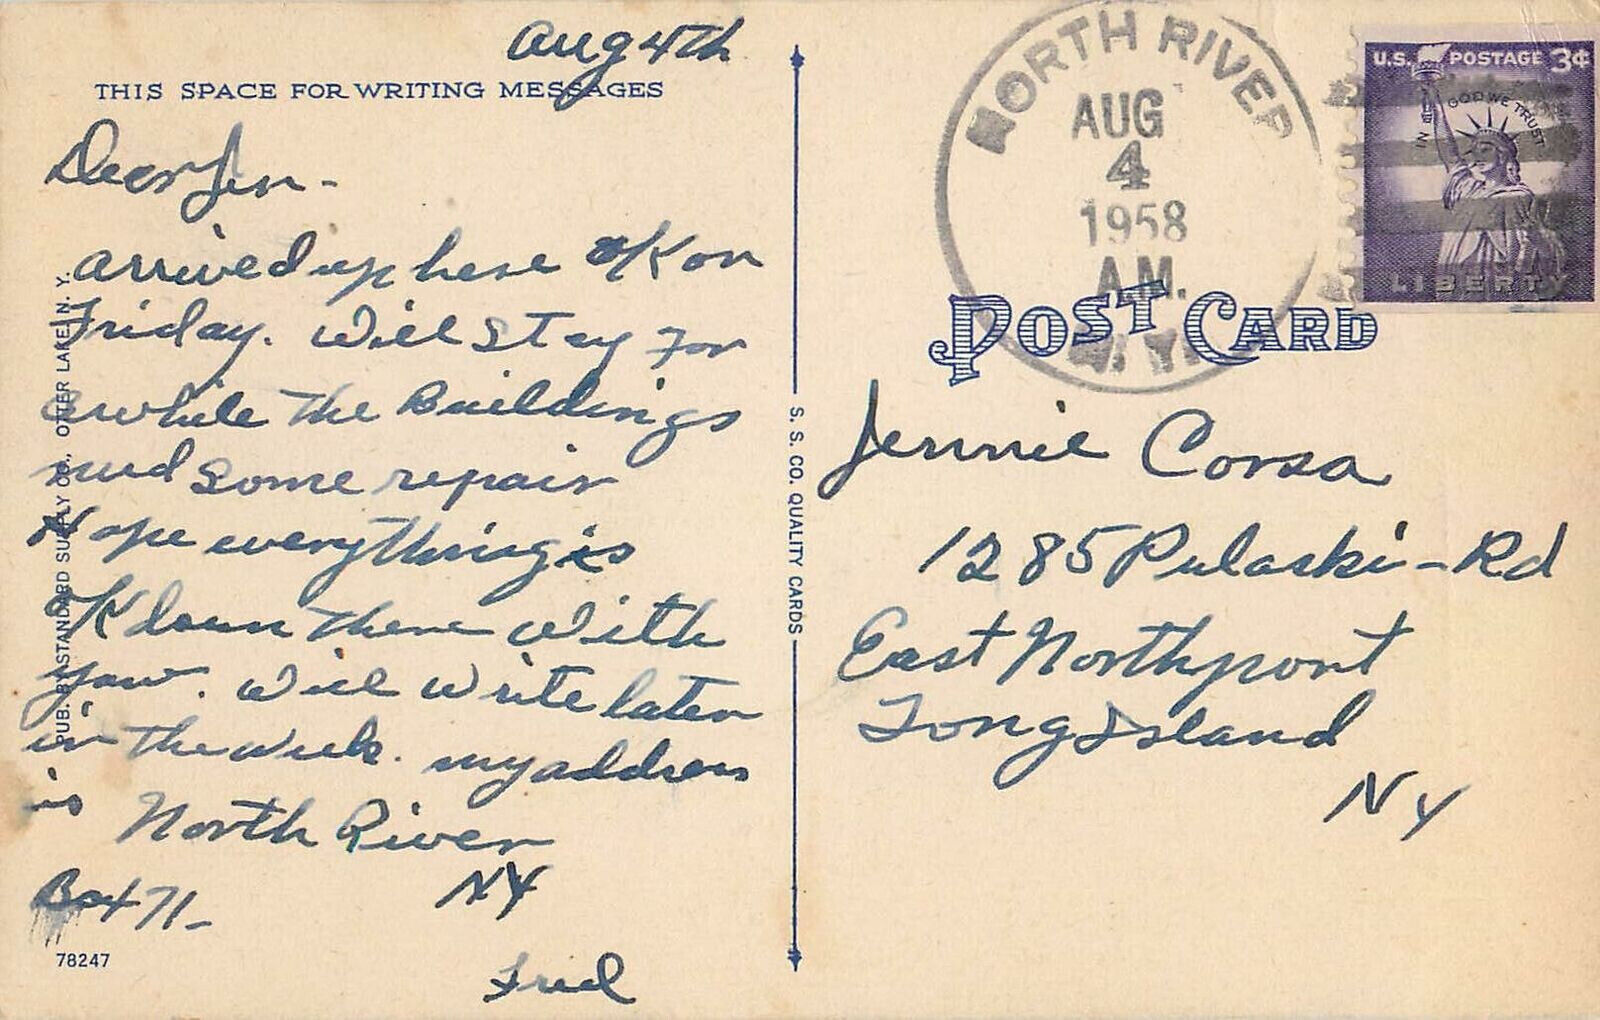 Aug 4th
THIS SPACE FOR WRITING MESSAGES
Dear Jen -
arrived up here OK on
Friday. Will stay for
awhile the Buildings
need some repair
Hope everything is
OK down there with
you. Will write later
in the week. my address
is North River
Box 71- NY
Fred
78247
PUB. BY STANDARD SUPPLY CO., OTTER LAKE, N. Y.
S. S. CO. QUALITY CARDS
NORTH RIVER
AUG
4
1958
A.M.
N.Y.
U.S. POSTAGE 3¢
IN GOD WE TRUST
LIBERTY
POST CARD
Jennie Corsa
1285 Pulaski - Rd
East Northport
Long Island
NY